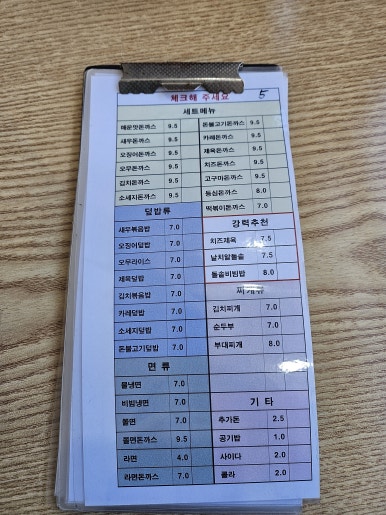 체크해 주세요 5
세트메뉴
매운맛돈까스 9.5 돈불고기돈까스 9.5
새우돈까스 9.5 카레돈까스 9.5
오징어돈까스 9.5 제육돈까스 9.5
오무돈까스 9.5 치즈돈까스 9.5
김치돈까스 9.5 고구마돈까스 9.5
소세지돈까스 9.5 등심돈까스 8.0
덮밥류 떡볶이돈까스 7.0
새우볶음밥 7.0 강력추천
오징어덮밥 7.0 치즈제육 7.5
오무라이스 7.0 날치알돌솥 7.5
제육덮밥 7.0 돌솥비빔밥 8.0
김치볶음밥 7.0 찌개류
카레덮밥 7.0 김치찌개 7.0
소세지덮밥 7.0 순두부 7.0
돈불고기덮밥 7.0 부대찌개 8.0
면 류
물냉면 7.0
비빔냉면 7.0 기 타
쫄면 7.0 추가돈 2.5
쫄면돈까스 9.5 공기밥 1.0
라면 4.0 사이다 2.0
라면돈까스 7.0 콜라 2.0